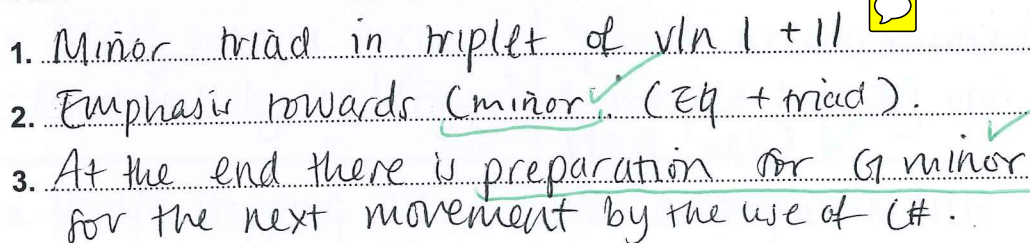 1. Minor triad in triplet of vln I + II
2. Emphasis towards Cminor. (Eq + triad).
3. At the end there is preparation for G minor
for the next movement by the use of C#.